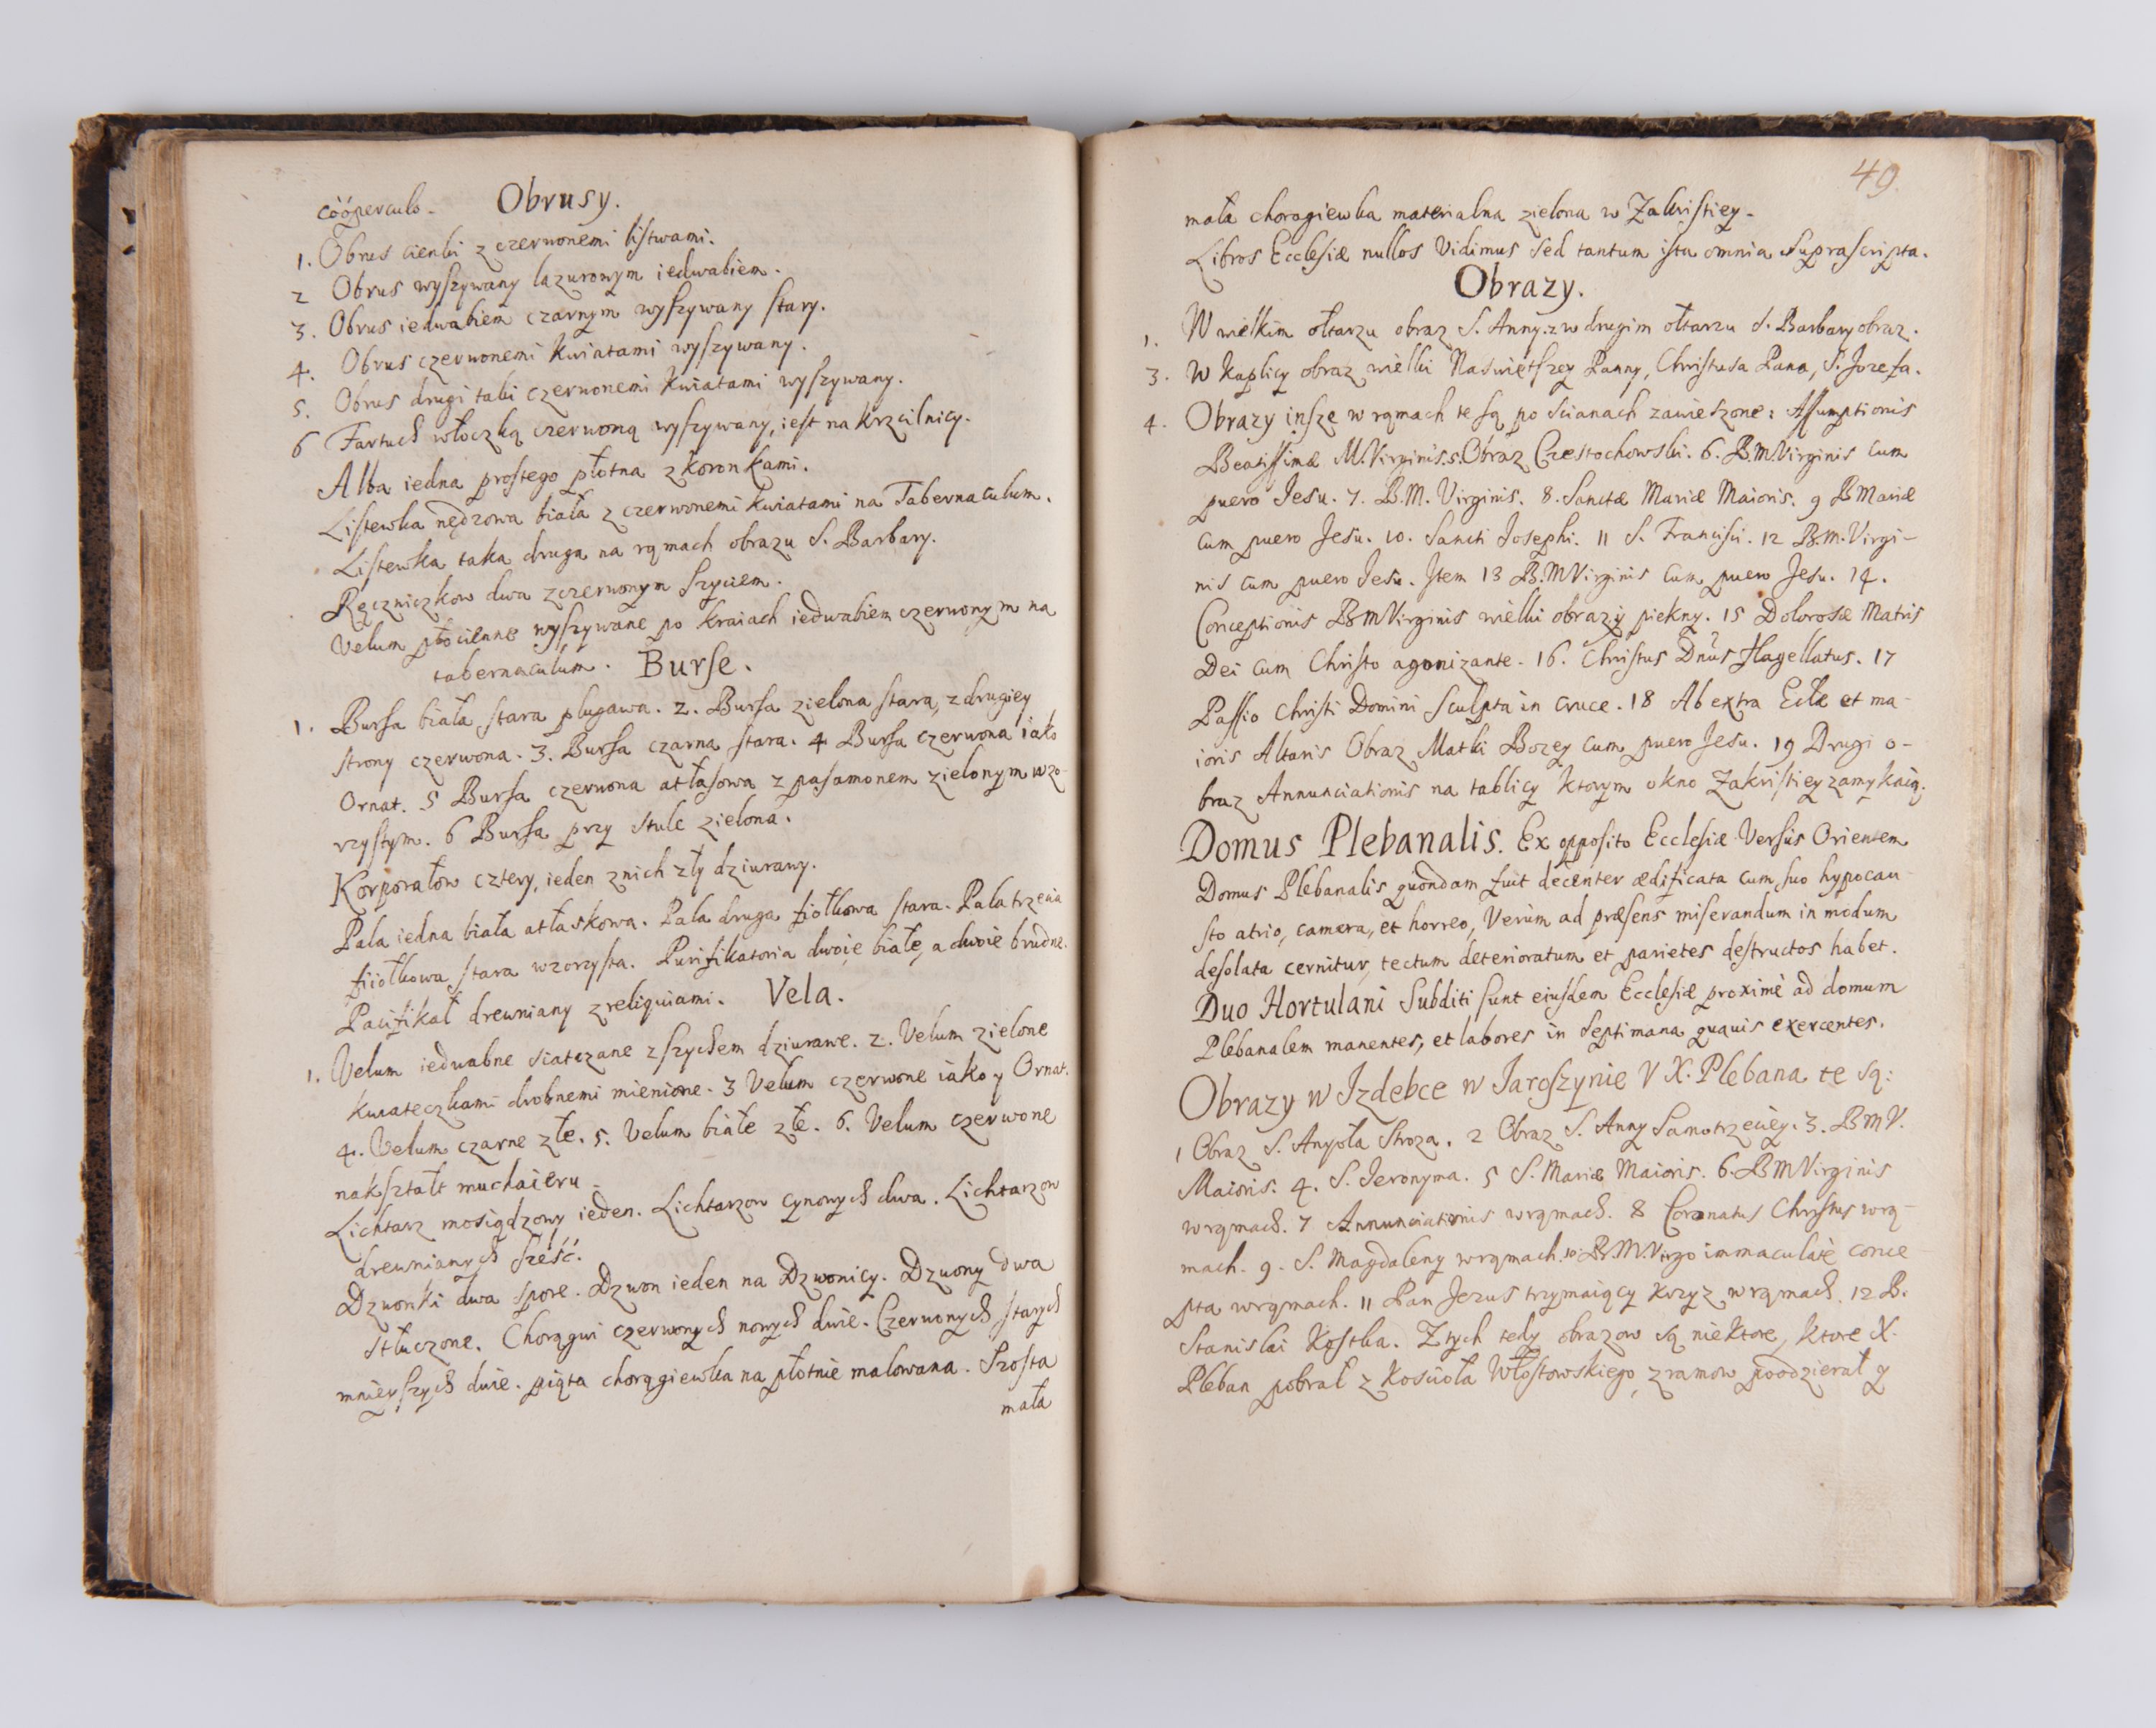 cooperculo. Obrusy.
1. Obrus cienki z czerwonemi listwami.
2 Obrus wyszywany lazurowym iedwabiem.
3. Obrus iedwabiem czarnym wyszywany stary.
4. Obrus czerwonemi kwiatami wyszywany.
5. Obrus drugi taki czerwonemi kwiatami wyszywany.
6 Fartuch włoczką czerwoną wyszywany, iest na krzcilnicy.
Alba iedna prostego płotna z koronkami.
Listewka nędzowa biała z czerwonemi kwiatami na Tabernaculum.
Listewka taka druga na rąmach obrazu S. Barbary.
Ręczniczkow dwa z czerwonym szyciem.
Velum płocienne wyszywane po kraiach iedwabiem czerwonym na
tabernaculum. Burse.
1. Bursa biała stara plugawa. 2. Bursa zielona stara, z drugiey
strony czerwona. 3. Bursa czarna stara. 4 Bursa czerwona iako
Ornat. 5 Bursa czerwona atłasowa z pasamonem zielonym wzo-
rzystym. 6 Bursa przy stule zielona.
Korporałow cztery, ieden z nich zły dziurawy.
Pala iedna biała atłaskowa. Pala druga fiołkowa stara. Pala trzecia
fiiołkowa stara wzorzysta. Purifikatoria dwoie białe, a dwoie brudne.
Pacifikał drewniany z reliquiami. Vela.
1. Velum iedwabne siatczane z szychem dziurawe. 2. Velum zielone
kwiateczkami drobnemi mienione. 3 Velum czerwone iako y Ornat.
4. Velum czarne złe. 5. Velum białe złe. 6. Velum czerwone
nakształt muchaieru.
Lichtarz mosiądzowy ieden. Lichtarzow cynowych dwa. Lichtarzow
drewnianych sześć.
Dzwonki dwa spore. Dzwon ieden na Dzwonicy. Dzwony dwa
stłuczone. Chorągwi czerwonych nowych dwie. Czerwonych starych
mnieyszych dwie. piąta chorągiewka na płotnie malowana. Szosta
mała
49
mała choragiewka materialna zielona w Zakristiey.
Libros Ecclesiæ nullos Vidimus sed tantum ista omnia supra scripta.
Obrazy.
1. W wielkim ołtarzu obraz S. Anny. 2 w drugim ołtarzu S. Barbary obraz.
3. W kaplicy obraz wielki Naświętszey Panny, Christusa Pana, S. Jozefa.
4. Obrazy insze w rąmach te są po scianach zawieszone: Assumptionis
Beatissimæ M. Virginis. 5. Obraz Czestochowski. 6. B.M Virginis cum
puero Jesu. 7. B.M. Virginis. 8. Sanctæ Mariæ Maioris. 9 B Mariæ
cum puero Jesu. 10. Sancti Josephi. 11 S. Francisci. 12 B.M. Virgi-
nis cum puero Jesu. Item 13 B.M Virginis cum puero Jesu. 14.
Conceptionis B M Virginis wielki obrazÿ piekny. 15 Dolorosæ Matris
Dei cum Christo agonizante. 16. Christus Dnus flagellatus. 17
Passio Christi Domini sculpta in cruce. 18 Ab extra Eclæ et ma-
ioris Altaris Obraz Matki Bozey cum puero Jesu. 19 Drugi o-
braz Annunciationis na tablicy ktorym okno Zakristiey zamykaią.
Domus Plebanalis. Ex opposito Ecclesiæ Versùs Orientem
Domus Plebanalis quondam fuit decenter ædificata cum suo hypocau-
sto atrio, camera, et horreo, Verùm ad præsens miserandum in modum
desolata cernitur, tectum deterioratum et parietes destructos habet.
Duo Hortulani Subditi sunt eiusdem Ecclesiæ proximè ad domum
Plebanalem manentes, et labores in Septimana quavis exercentes.
Obrazy w Izdebce w Jaroszynie V X. Plebana te są:
1 Obraz S. Anyoła Stroza. 2 Obraz S. Anny Samotrzeciey. 3. B M V.
Maioris. 4. S. Jeronyma. 5 S. Mariæ Maioris. 6. B M Virginis
w rąmach. 7 Annunciationis w rąmach. 8 Coronatus Christus w rą-
mach. 9. S. Magdaleny w rąmach. 10. B.M. Virgo immaculatè conce
pta w rąmach. 11 Pan Jezus trzymaiący krzyz w rąmach. 12 B.
Stanislai Kostka. Z tych tedy obrazow są niektore, ktore X.
Pleban pobrał z kościoła Włostowskiego, z ramow poodzierał y